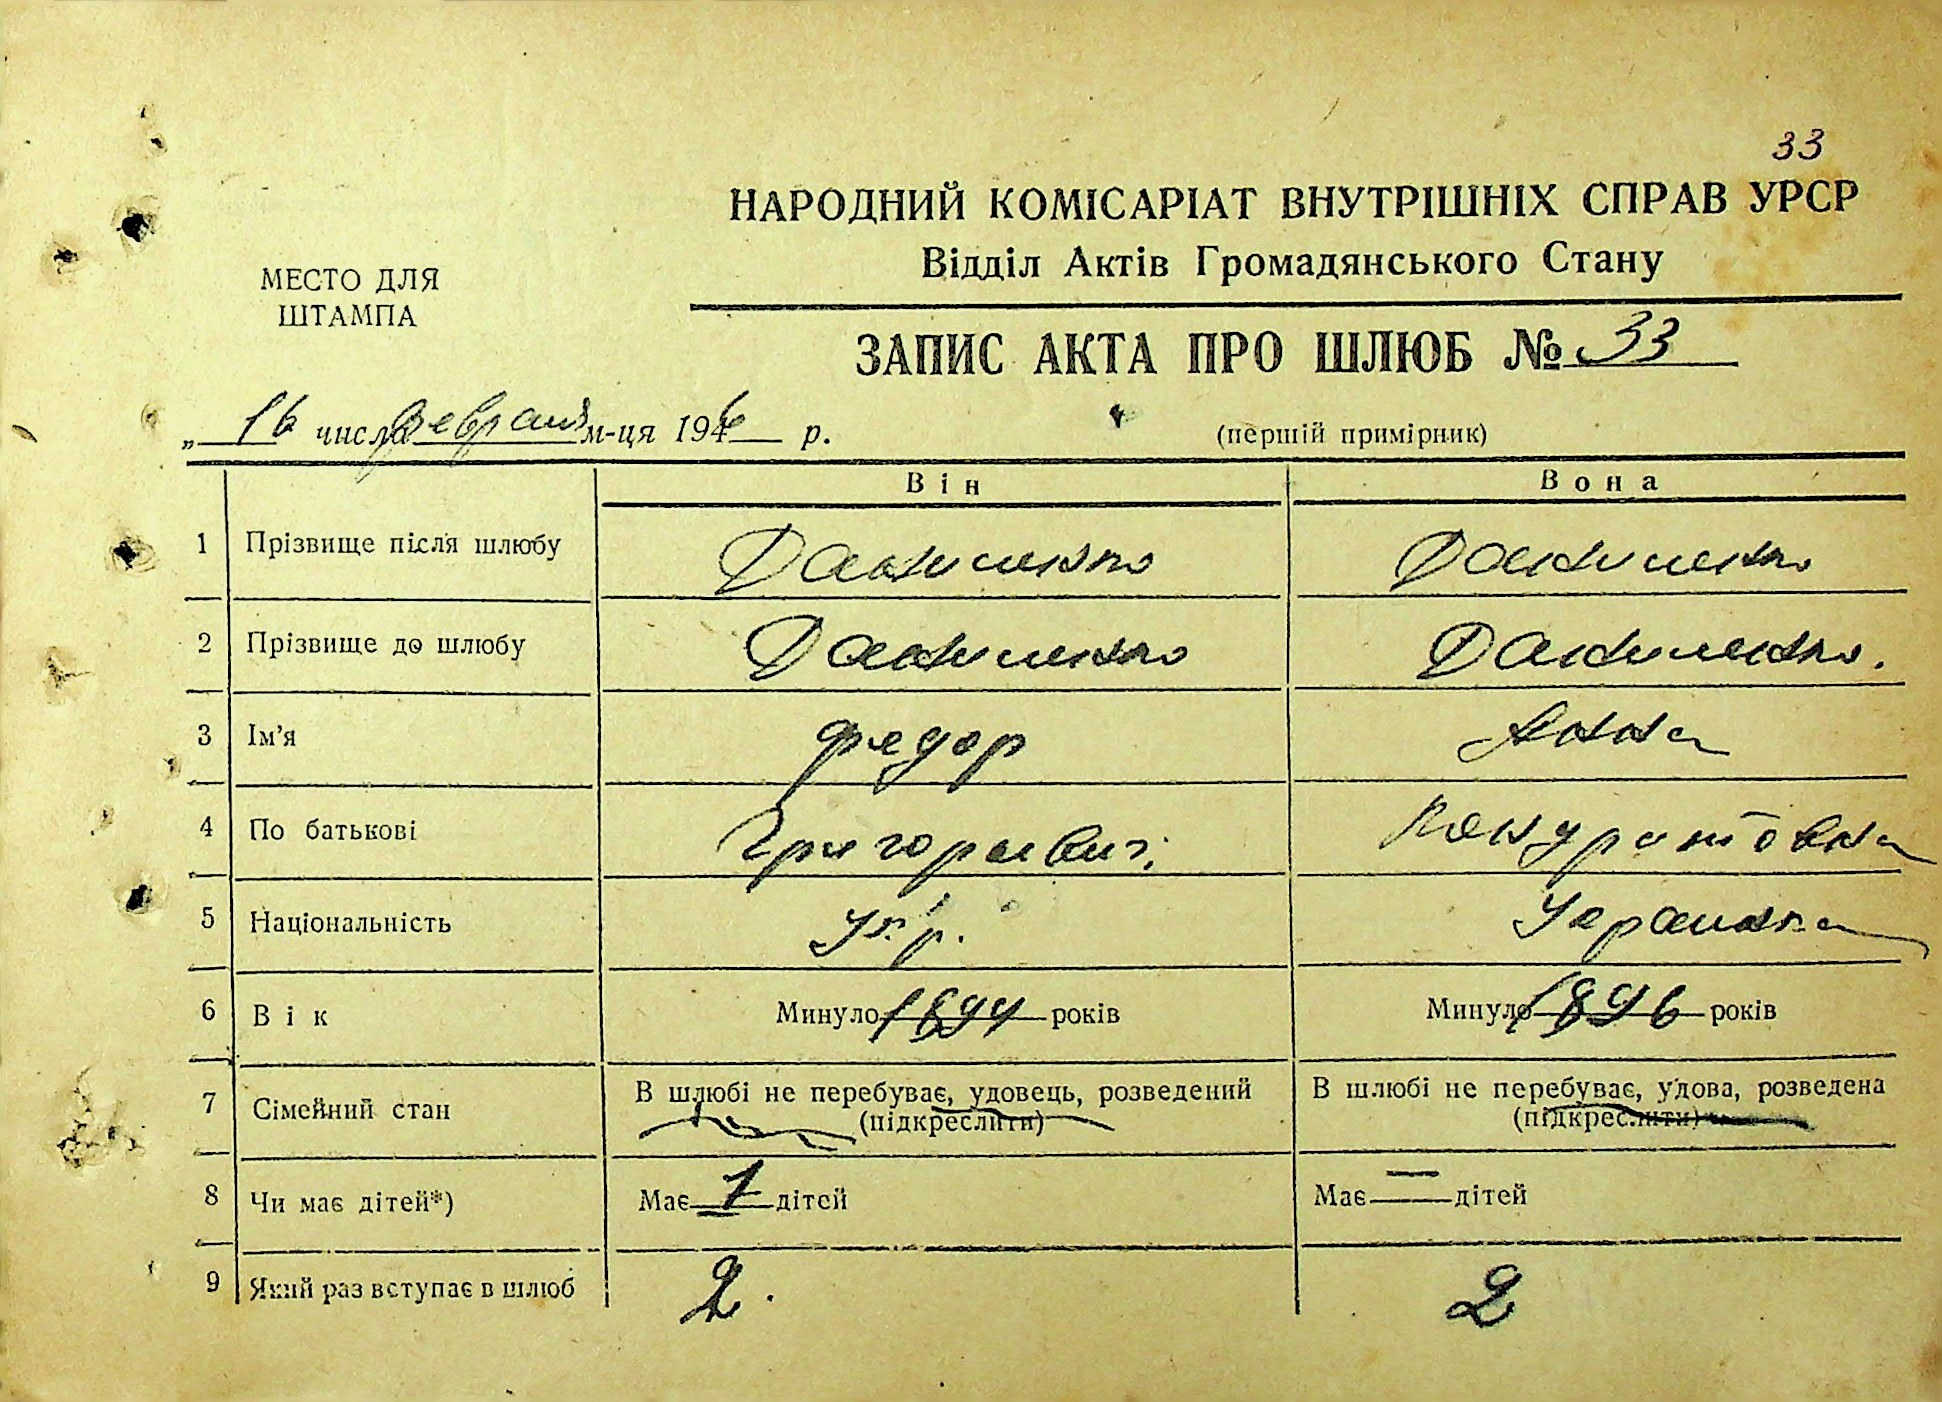 33
НАРОДНИЙ КОМІСАРІАТ ВНУТРІШНІХ СПРАВ УРСР
Відділ Актів Громадянського Стану
МЕСТО ДЛЯ
ШТАМПА
ЗАПИС АКТА ПРО ШЛЮБ № 33
„ 16 числа февраля м-ця 1946 р.
(першій примірник)
Він Вона
1 Прізвище після шлюбу Даниленко Даниленко
2 Прізвище до шлюбу Даниленко Даниленко.
3 Ім'я Федор Анна
4 По батькові Григорьевич
5 Національність Укр. Украинка
6 Вік Минуло 1894 років Минуло 1896 років
7 Сімейний стан В шлюбі не перебуває, удовець, розведений В шлюбі не перебуває, удова, розведена
(підкреслити) (підкреслити)
8 Чи має дітей*) Має 1 дітей Має — дітей
9 Який раз вступає в шлюб 2. 2